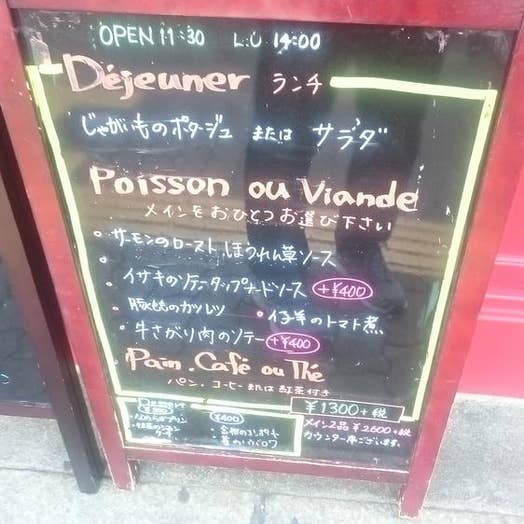 OPEN 11:30 L.O 14:00
Déjeuner ランチ
じゃがいものポタージュ または サラダ
Poisson ou Viande
メインをおひとつお選び下さい
・サーモンのロースト ほうれん草ソース
・イサキのソテー タップナードソース +¥400
・豚もものカツレツ ・仔羊のトマト煮
・牛さがり肉のソテー +¥400
Pain. Café ou Thé
パン. コーヒーまたは紅茶付き
¥1300+税
メイン2品 ¥2600+税
カウンター席ございます。
¥400